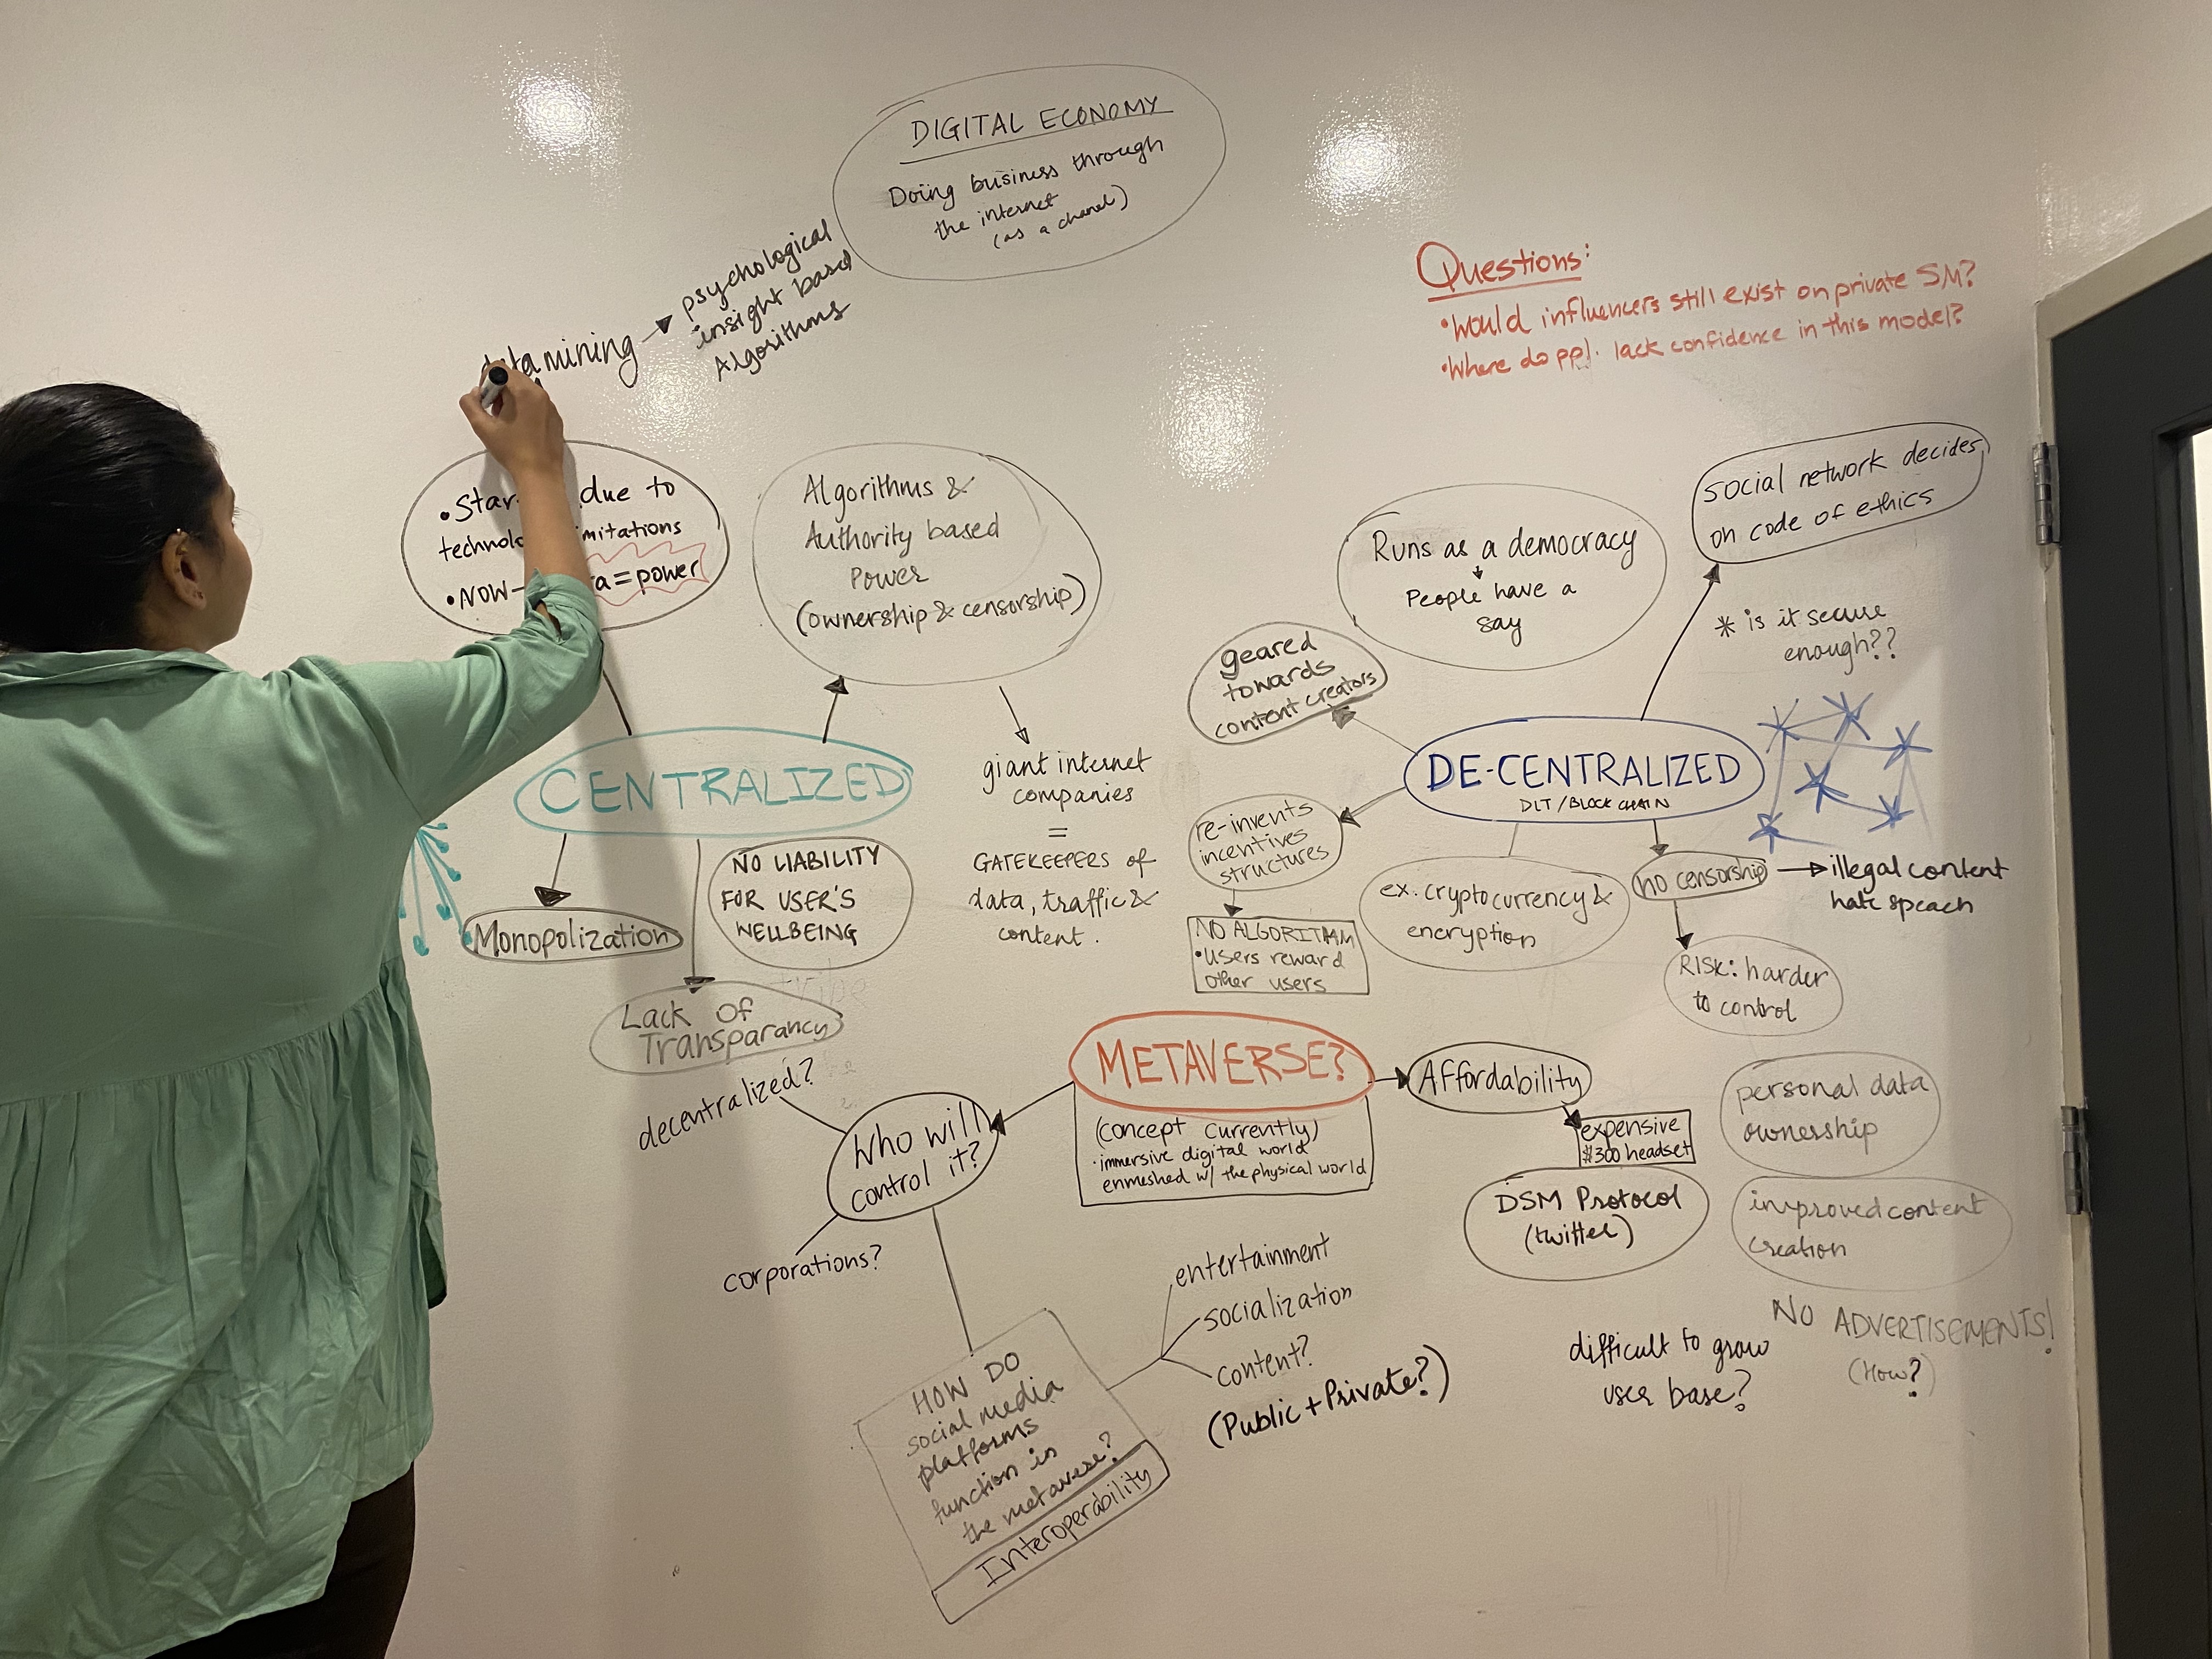 DIGITAL ECONOMY
Doing business through
the internet
(as a chanel)
psychological
insight based
Algorithms
mining
Questions:
• Would influencers still exist on private SM?
• Where do ppl. lack confidence in this model?
• due to
• NOW
= power
Algorithms &
Authority based
Power
(ownership & censorship)
giant internet
companies
=
GATEKEEPERS of
data, traffic &
content.
CENTRALIZED
Monopolization
NO LIABILITY
FOR USER'S
WELLBEING
Lack of
Transparancy
Runs as a democracy
People have a
say
social network decides
on code of ethics
* is it secure
enough??
geared
towards
content creators
DE-CENTRALIZED
DLT/BLOCK CHAIN
re-invents
incentive
structures
NO ALGORITHM
• users reward
other users
ex. cryptocurrency &
encryption
no censorship
illegal content
hate speach
RISK: harder
to control
METAVERSE?
(concept currently)
• immersive digital world
enmeshed w/ the physical world
Affordability
expensive
$300 headset
DSM Protocol
(twitter)
personal data
ownership
improved content
creation
NO ADVERTISEMENTS!
(How?)
difficult to grow
user base?
decentralized?
Who will
control it?
corporations?
HOW DO
social media
platforms
function in
the metaverse?
Interoperability
entertainment
socialization
content?
(Public + Private?)